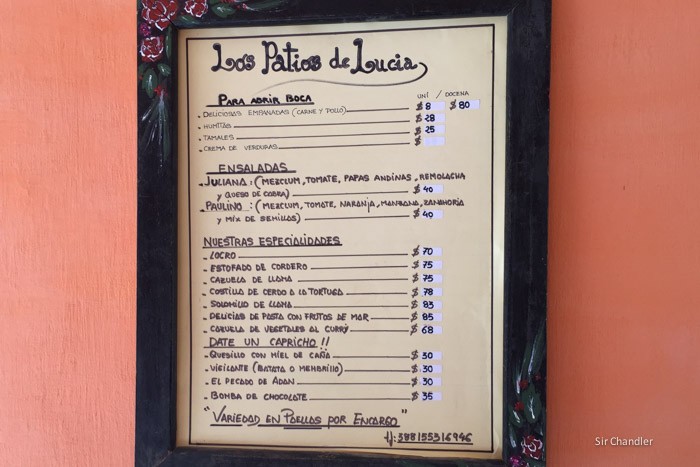 Los Patios de Lucia
PARA ABRIR BOCA UNI / DOCENA
- DELICIOSAS EMPANADAS (CARNE Y POLLO) $ 8 $ 80
- HUMITAS $ 28
- TAMALES $ 25
- CREMA DE VERDURAS $
ENSALADAS
- JULIANA: (MEZCLUM, TOMATE, PAPAS ANDINAS, REMOLACHA
Y QUESO DE CABRA) $ 40
- PAULINO: (MEZCLUM, TOMATE, NARANJA, MANZANA, ZANAHORIA
Y MIX DE SEMILLAS) $ 40
NUESTRAS ESPECIALIDADES
- LOCRO $ 70
- ESTOFADO DE CORDERO $ 75
- CAZUELA DE LLAMA $ 75
- COSTILLA DE CERDO A LA TORTUGA $ 78
- SOLOMILLO DE LLAMA $ 83
- DELICIAS DE PASTA CON FRUTOS DE MAR $ 85
- CAZUELA DE VEGETALES AL CURRY $ 68
DATE UN CAPRICHO !!
- QUESILLO CON MIEL DE CAÑA $ 30
- VIGILANTE (BATATA O MEMBRILLO) $ 30
- EL PECADO DE ADAN $ 30
- BOMBA DE CHOCOLATE $ 35
"VARIEDAD EN PAELLAS POR ENCARGO"
388155316946
Sir Chandler